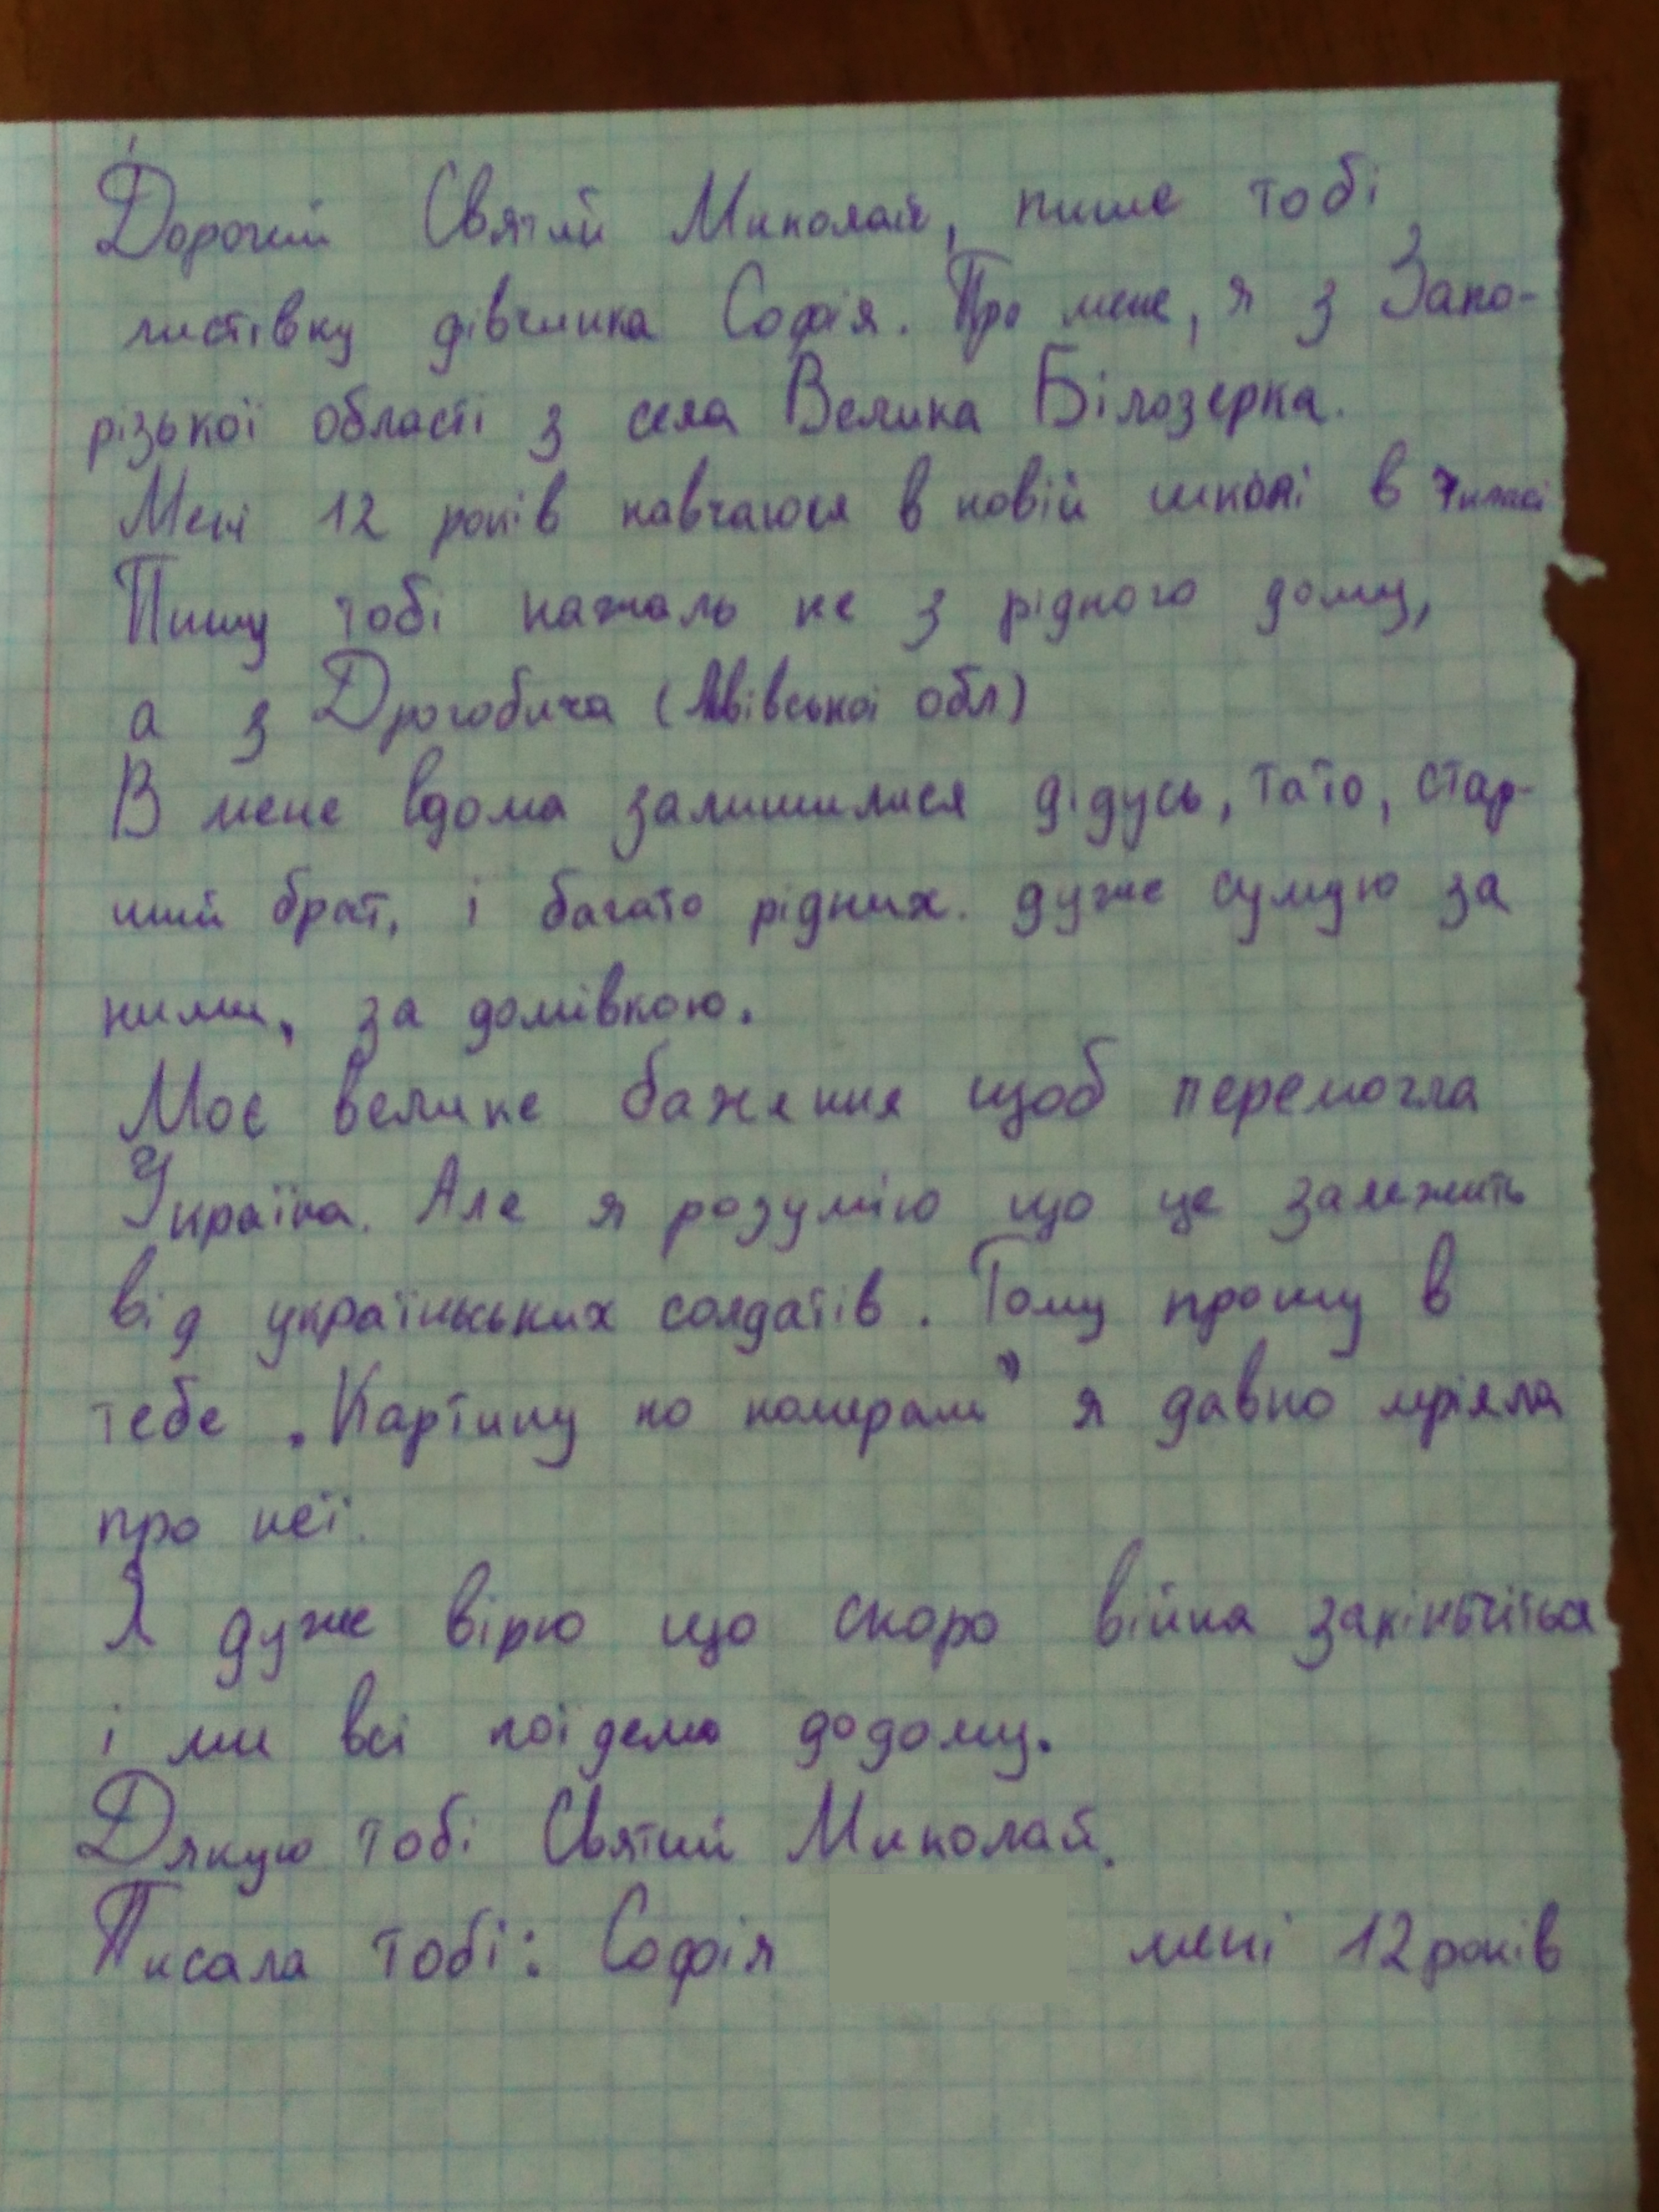 Дорогий Святий Миколай, пише тобі
листівку дівчинка Софія. Про мене, я з Запо-
різької області з села Велика Білозерка.
Мені 12 років навчаюся в новій школі в 7 класі
Пишу тобі нажаль не з рідного дому,
а з Дрогобича (Львівської обл)
В мене вдома залишилися дідусь, тато, стар-
ший брат, і багато рідних. дуже сумую за
ними, за домівкою.
Моє велике бажання щоб перемогла
Україна. Але я розумію що це залежить
від українських солдатів. Тому прошу в
тебе „Картину по номерам" я давно мріяла
про неї.
Я дуже вірю що скоро війна закінчиться
і ми всі поїдемо додому.
Дякую тобі Святий Миколай.
Писала тобі: Софія мені 12 років